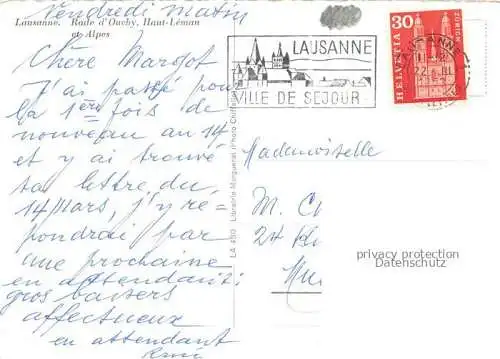 Vendredi Matin
Lausanne. Rade d'Ouchy, Haut-Léman
et Alpes
Chère Margot
J'ai passé pour
la 1ère fois de
nouveau au 14
et y ai trouvé
ta lettre du
14 mars, j'y ré-
pondrai par
une prochaine
en attendant:
gros baisers
affectueux
en attendant
LA 450 Librairie Marguerat
LAUSANNE
VILLE DE SEJOUR
30
HELVETIA
ZÜRICH
LAUSANNE
Mademoiselle
M.
24
privacy protection
Datenschutz